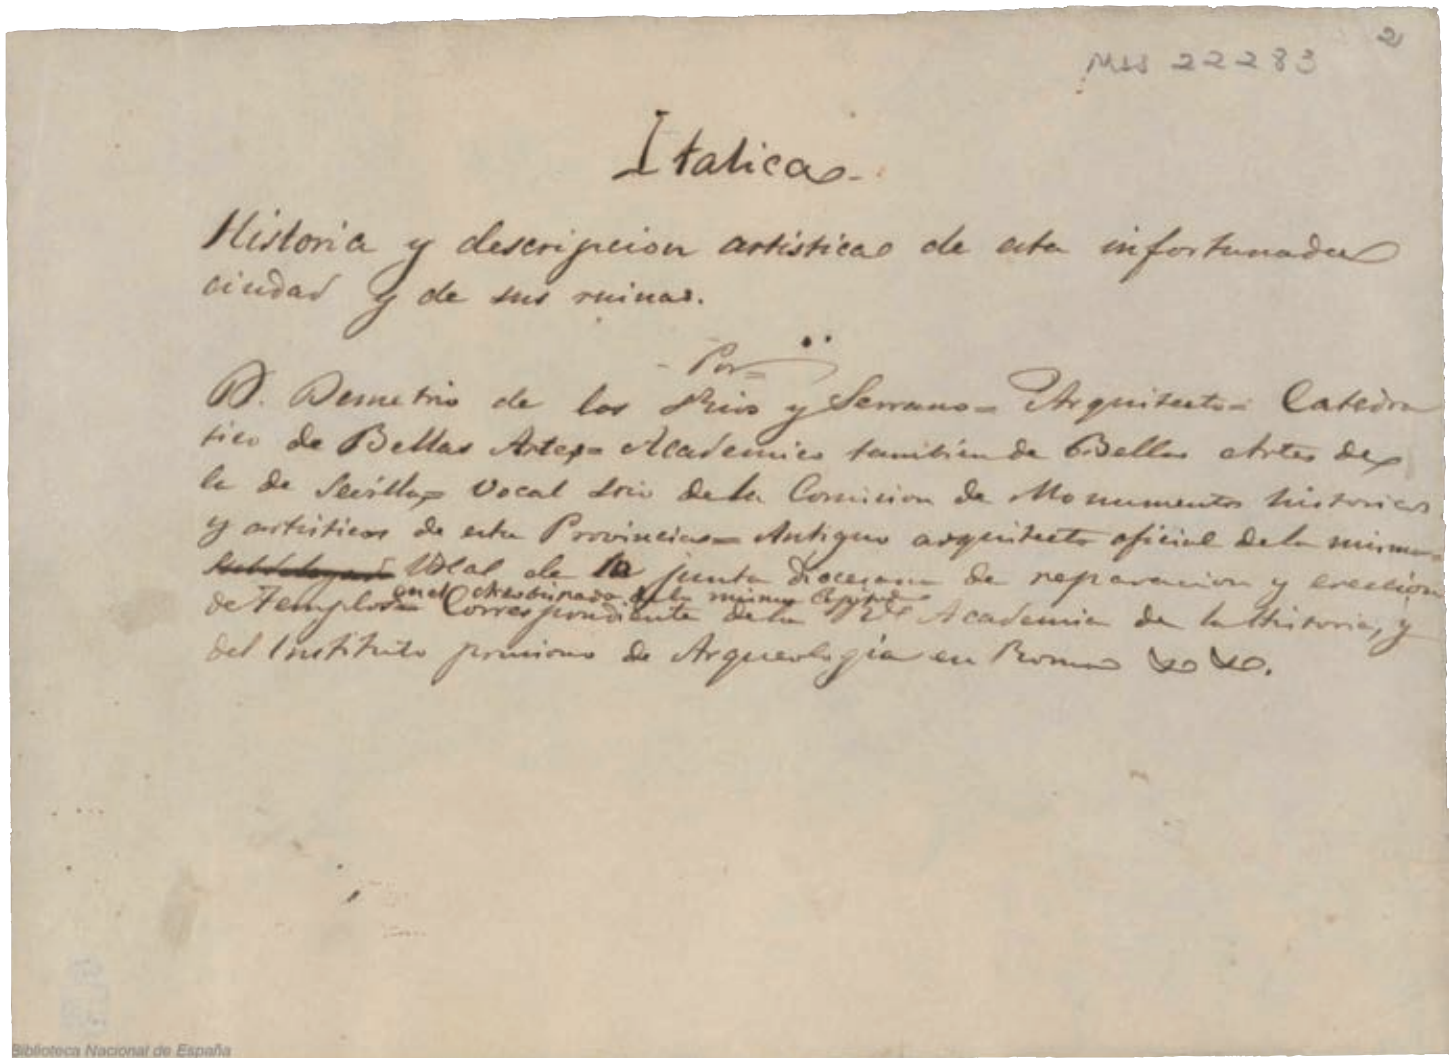 2
Mss 22283
Italica-
Historia y descripcion artistica de esta infortunada
ciudad y de sus ruinas.
- Por =
D. Demetrio de los Rios y Serrano = Arquitecto = Catedra
tico de Bellas Artes = Academico tambien de Bellas Artes de
la de Sevilla = Vocal Srio de la Comision de Monumentos historicos
y artisticos de esta Provincia = Antiguo arquitecto oficial de la misma =
Vocal de la junta Diocesana de reparacion y ereccion
en el Arzobispado de la misma Capital
de Templos = Correspondiente de la Rl Academia de la Historia, y
del Instituto prusiano de Arqueologia en Roma
Biblioteca Nacional de España